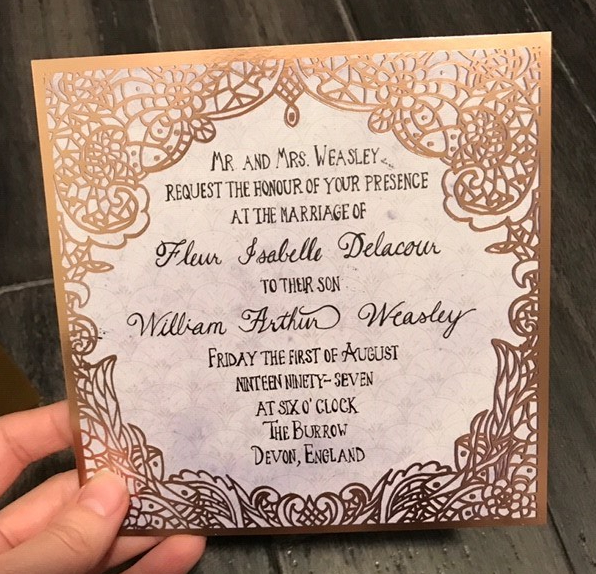 Mr and Mrs. Weasley
request the honour of your presence
at the marriage of
Fleur Isabelle Delacour
to their son
William Arthur Weasley
Friday the first of August
ninteen ninety-seven
at six o'clock
The Burrow
Devon, England